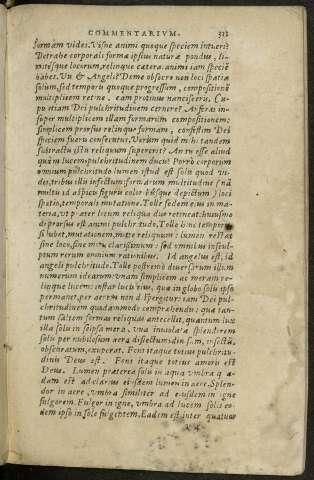 COMMENTARIVM. 312
formam vides. Visne animi quoque speciem intueri?
Detrahe corporali formæ ipsius naturæ pondus, li-
mitésque locorum, relinque cætera. animi iam speciem
habes. Vis & Angeli? Deme obsecro non loci spatia
solum, sed temporis quoque progressum, compositionē
multiplicem retine, eam protinus nancisceris. Cu-
pis etiam Dei pulchritudinem cernere? Aufer in-
super multiplicem illam formarum compositionem:
simplicem prorsus relinque formam, confestim Dei
speciem fueris consecutus. Verum quid mihi tandem
subtractis istis reliquum superest? An tu esse aliud
quàm lucem pulchritudinem ducis? Porrò corporum
omnium pulchritudo lumen istud est solis quod vi-
des, tribus illis infectum: formarum multitudine (nā
multis id ad picis figuris coloribúsque depictum) loci
spatio, temporali mutatione. Tolle sedem eius in ma-
teria, vt præter locum reliqua duo retineat: huiusmo
di prorsus est animi pulchritudo. Tolle hinc temporis
si lubet, mutationem, mitte reliquum: lumen restat
sine loco, sine motu clarissimum: sed omnibus insculp
tum rerum omnium rationibus. Id angelus est, id
angeli pulchritudo. Tolle postremò diuersarum illum
numerum idearum. vnam simplicem ac meram re-
linque lucem: instar lucis eius, quæ in globo solis ipso
permanet, per aërem non dispergitur: iam Dei pul-
chritudinem quodammodo comprehendis: quæ tan-
tum saltem formas reliquas antecellit, quantum lux
illa solis in seipsa mera, vna inuiolata splendorem
solis per nubilosum aëra dissectum: diuisum, infectū,
obscuratum, exuperat. Fons itaque totius pulchritu-
dinis Deus est. Fons itaque totius amoris est
Deus. Lumen præterea solis in aqua vmbra quæ-
dam est ad clarius eiusdem lumen in aëre. Splen-
dor in aëre, vmbra similiter ad eiusdem in igne
fulgorem. Fulgor in igne, vmbra ad lucem solis eo-
dem ipso in sole fulgentem. Eadem est inter quatuor